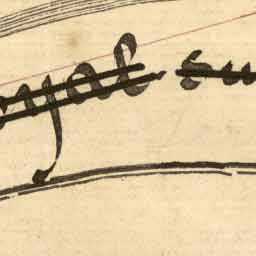 oyal su